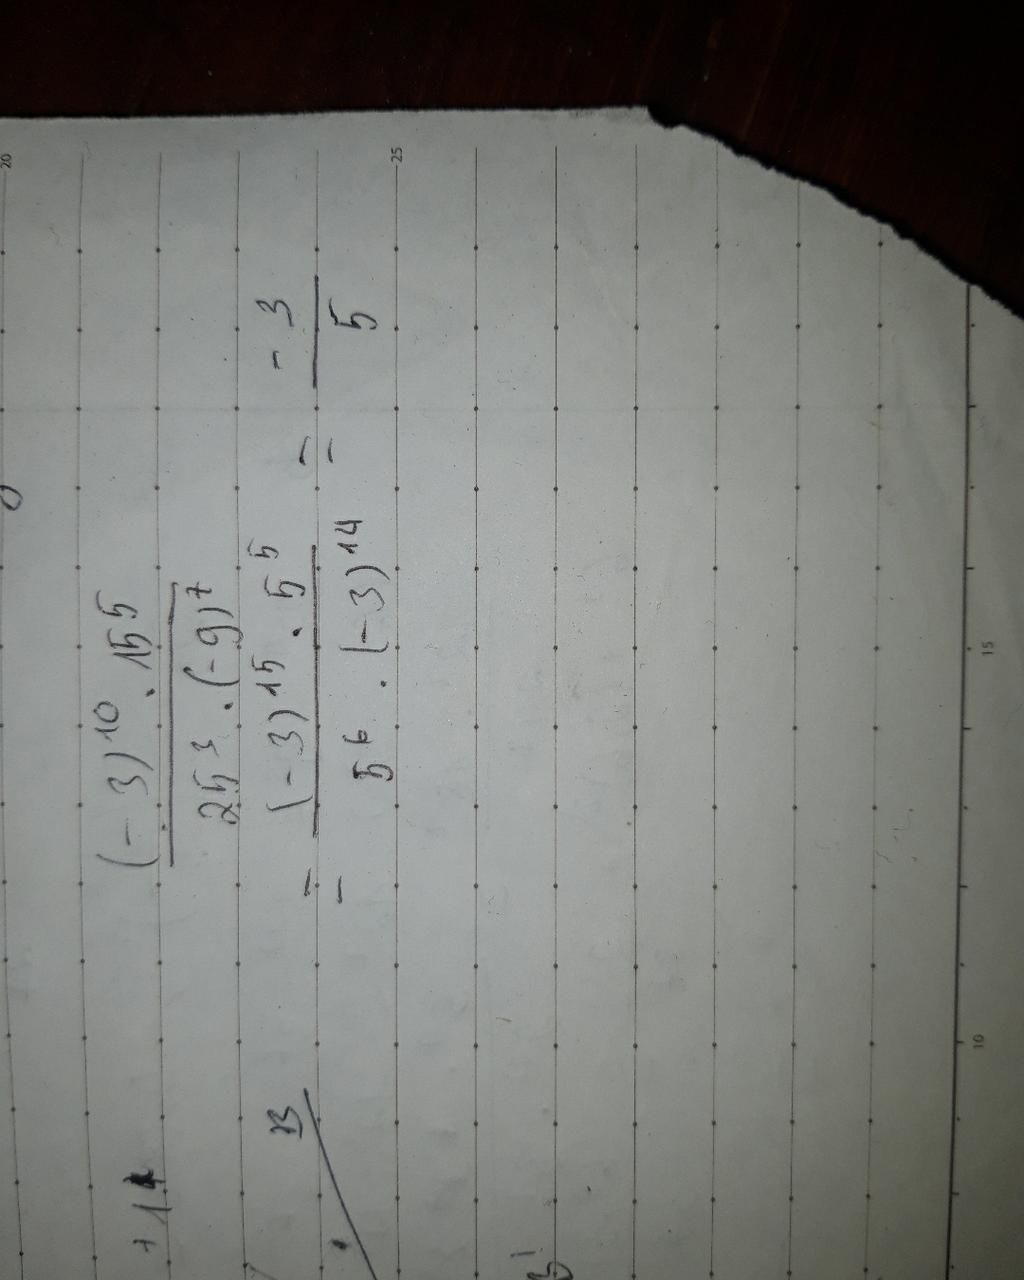 (-3)^10 . 15^5
25^3 . (-9)^7
= (-3)^15 . 5^5 / 5^6 . (-3)^14 = -3 / 5
+ 14
B
20
25
15
10